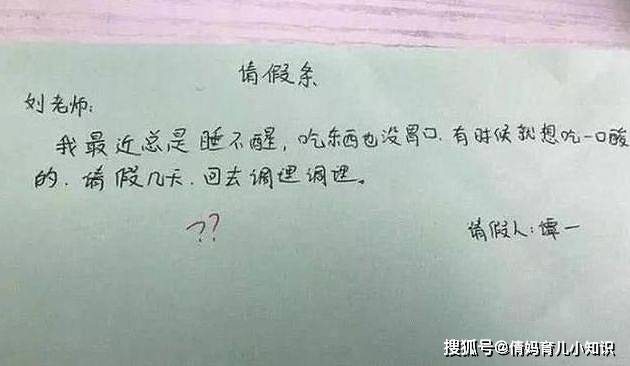 请假条
刘老师:
我最近总是睡不醒,吃东西也没胃口.有时候就想吃一口酸
的.请假几天.回去调理调理。
??
请假人:谭一
搜狐号@倩妈育儿小知识